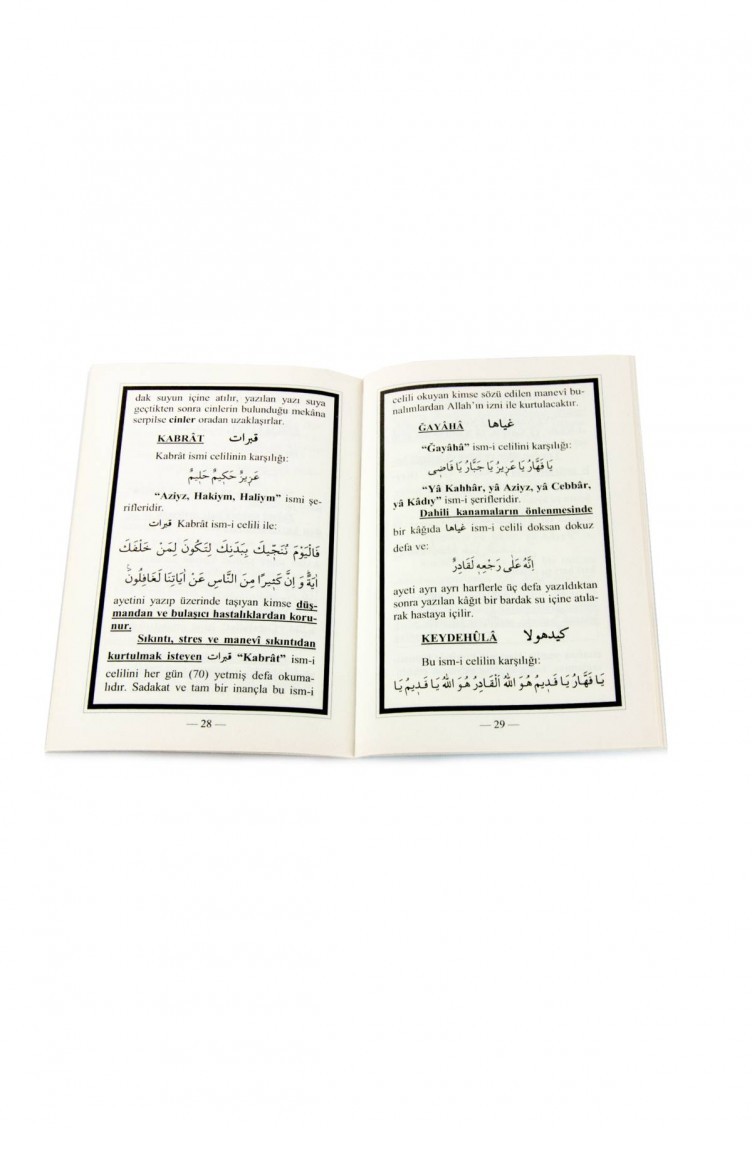 dak suyun içine atılır, yazılan yazı suya
geçtikten sonra cinlerin bulunduğu mekâna
serpilse cinler oradan uzaklaşırlar.
KABRÂT قبرات
Kabrât ismi celilinin karşılığı:
عَزِيزٌ حَكِيمٌ حَلِيمٌ
“Aziyz, Hakiym, Haliym” ismi şe-
rifleridir.
قبرات Kabrât ism-i celili ile:
فَالْيَوْمَ نُنَجِّيكَ بِبَدَنِكَ لِتَكُونَ لِمَنْ خَلْفَكَ
اٰيَةً وَ اِنَّ كَثِيرًا مِنَ النَّاسِ عَنْ اٰيَاتِنَا لَغَافِلُونَ
ayetini yazıp üzerinde taşıyan kimse düş-
mandan ve bulaşıcı hastalıklardan koru-
nur.
Sıkıntı, stres ve manevî sıkıntıdan
kurtulmak isteyen قبرات “Kabrât” ism-i
celilini her gün (70) yetmiş defa okuma-
lıdır. Sadakat ve tam bir inançla bu ism-i
— 28 —
celili okuyan kimse sözü edilen manevi bu-
nalımlardan Allah’ın izni ile kurtulacaktır.
ĞAYÂHÂ غياها
“Ğayâhâ” ism-i celilini karşılığı:
يَا قَهَّارُ يَا عَزِيزُ يَا جَبَّارُ يَا قَاضِى
“Yâ Kahhâr, yâ Aziyz, yâ Cebbâr,
yâ Kâdıy” ism-i şerifleridir.
Dahili kanamaların önlenmesinde
bir kâğıda غياها ism-i celili doksan dokuz
defa ve:
اِنَّهُ عَلٰى رَجْعِهِ لَقَادِرٌ
ayeti ayrı ayrı harflerle üç defa yazıldıktan
sonra yazılan kâğıt bir bardak su içine atıla-
rak hastaya içilir.
KEYDEHÛLÂ كيدهولا
Bu ism-i celilin karşılığı:
يَا قَهَّارُ يَا قَدِيمُ هُوَ اللّٰهُ اَلْقَادِرُ هُوَ اللّٰهُ يَا قَدِيمُ يَا
— 29 —